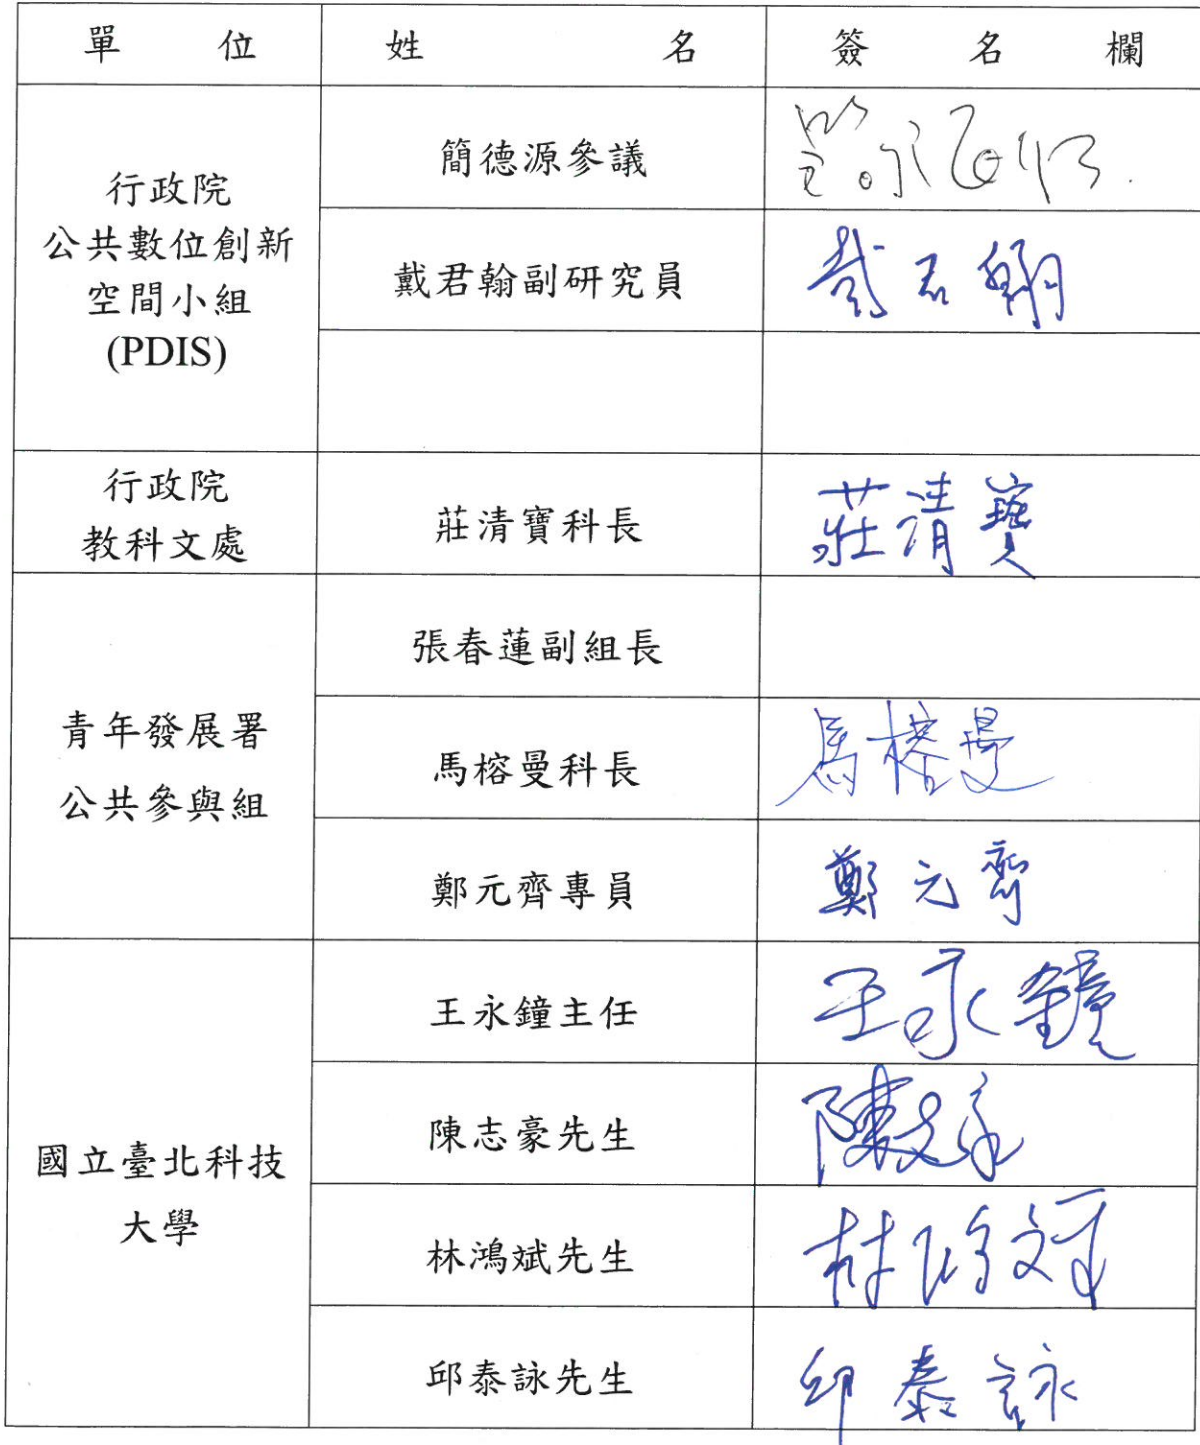 單 位 姓 名 簽 名 欄
行政院
公共數位創新
空間小組
(PDIS)
簡德源參議
戴君翰副研究員
戴君翰
行政院
教科文處
莊清寶科長
莊清寶
青年發展署
公共參與組
張春蓮副組長
馬榕曼科長
馬榕曼
鄭元齊專員
鄭元齊
國立臺北科技
大學
王永鐘主任
王永鐘
陳志豪先生
陳志豪
林鴻斌先生
林鴻斌
邱泰詠先生
邱泰詠